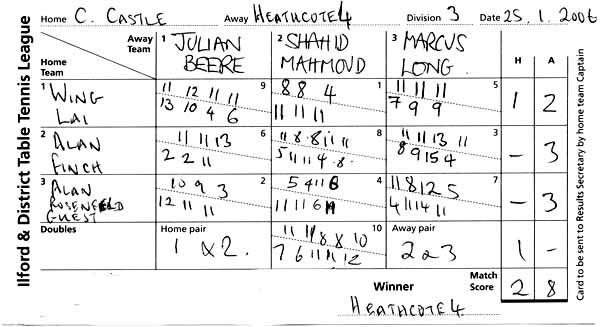 Ilford & District Table Tennis League
Home C. CASTLE Away HEATHCOTE 4 Division 3 Date 25.1.2006
Away Team 1 JULIAN BEERE 2 SHAHID MAHMOUD 3 MARCUS LONG H A
Home Team
1 WING LAI
11 12 11 11 9
13 10 4 6
8 8 4 1
11 11 11
11 11 11 5
7 9 9
1 2
2 ALAN FINCH
11 11 13 6
2 2 11
11 8 8 11 11 8
5 11 11 4 8
11 11 13 11 3
8 9 15 4
- 3
3 ALAN ROSENFELD GUEST
10 9 3 2
12 11 11
5 4 11 8 4
11 11 6 11
11 8 12 5 7
4 11 14 11
- 3
Doubles Home pair 1 & 2.
11 11 8 8 10
7 6 11 11 12
Away pair 2 & 3
1 -
Winner HEATHCOTE 4
Match Score 2 8
Card to be sent to Results Secretary by home team Captain